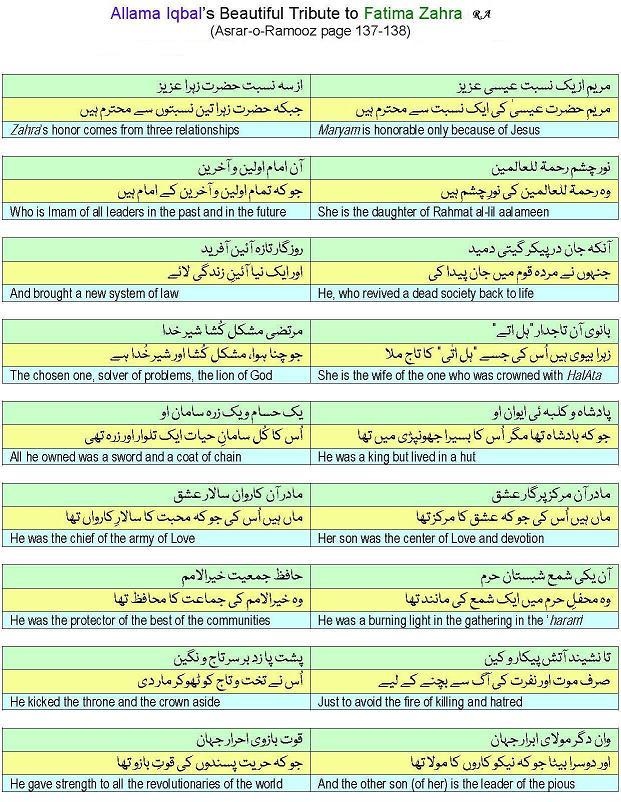 Allama Iqbal's Beautiful Tribute to Fatima Zahra RA
(Asrar-o-Ramooz page 137-138)
مریم از یک نسبت عیسی عزیز
از سه نسبت حضرت زہرا عزیز
مریم حضرت عیسیٰ کی ایک نسبت سے محترم ہیں
جبکہ حضرت زہرا تین نسبتوں سے محترم ہیں
Maryam is honorable only because of Jesus
Zahra's honor comes from three relationships
نور چشم رحمة للعالمین
آن امام اولین و آخرین
وہ رحمة للعالمین کی نورِ چشم ہیں
جو کہ تمام اولین و آخرین کے امام ہیں
She is the daughter of Rahmat al-lil aalameen
Who is Imam of all leaders in the past and in the future
آنکه جان در پیکر گیتی دمید
روزگار تازه آئین آفرید
جنہوں نے مردہ قوم میں جان پیدا کی
اور ایک نیا آئینِ زندگی لائے
He, who revived a dead society back to life
And brought a new system of law
بانوی آن تاجدار "ہل اتے"
مرتضی مشکل کُشا شیر خدا
زہرا بیوی ہیں اُس کی جسے "ہل اتٰی" کا تاج ملا
جو چنا ہوا، مشکل کُشا اور شیر خُدا ہے
She is the wife of the one who was crowned with HalAta
The chosen one, solver of problems, the lion of God
پادشاه و کلبه ئی ایوان او
یک حسام و یک زره سامان او
جو کہ بادشاہ تھا مگر اُس کا بسیرا جھونپڑی میں تھا
اُس کا کُل سامانِ حیات ایک تلوار اور زرہ تھی
He was a king but lived in a hut
All he owned was a sword and a coat of chain
مادر آن مرکز پرگار عشق
مادر آن کاروان سالار عشق
ماں ہیں اُس کی جو کہ عشق کا مرکز تھا
ماں ہیں اُس کی جو کہ محبت کا سالارِ کارواں تھا
Her son was the center of Love and devotion
He was the chief of the army of Love
آن یکی شمع شبستان حرم
حافظ جمعیت خیرالامم
وہ محفلِ حرم میں ایک شمع کی مانند تھا
وہ خیرالامم کی جماعت کا محافظ تھا
He was a burning light in the gathering in the 'hararrl
He was the protector of the best of the communities
تا نشیند آتش پیکار و کین
پشت پا زد بر سر تاج و نگین
صرف موت اور نفرت کی آگ سے بچنے کے لیے
اُس نے تخت و تاج کو ٹھوکر مار دی
Just to avoid the fire of killing and hatred
He kicked the throne and the crown aside
وان دگر مولای ابرار جہان
قوت بازوی احرار جہان
اور دوسرا بیٹا جو کہ نیکو کاروں کا مولا تھا
جو کہ حریت پسندوں کی قوتِ بازو تھا
And the other son (of her) is the leader of the pious
He gave strength to all the revolutionaries of the world